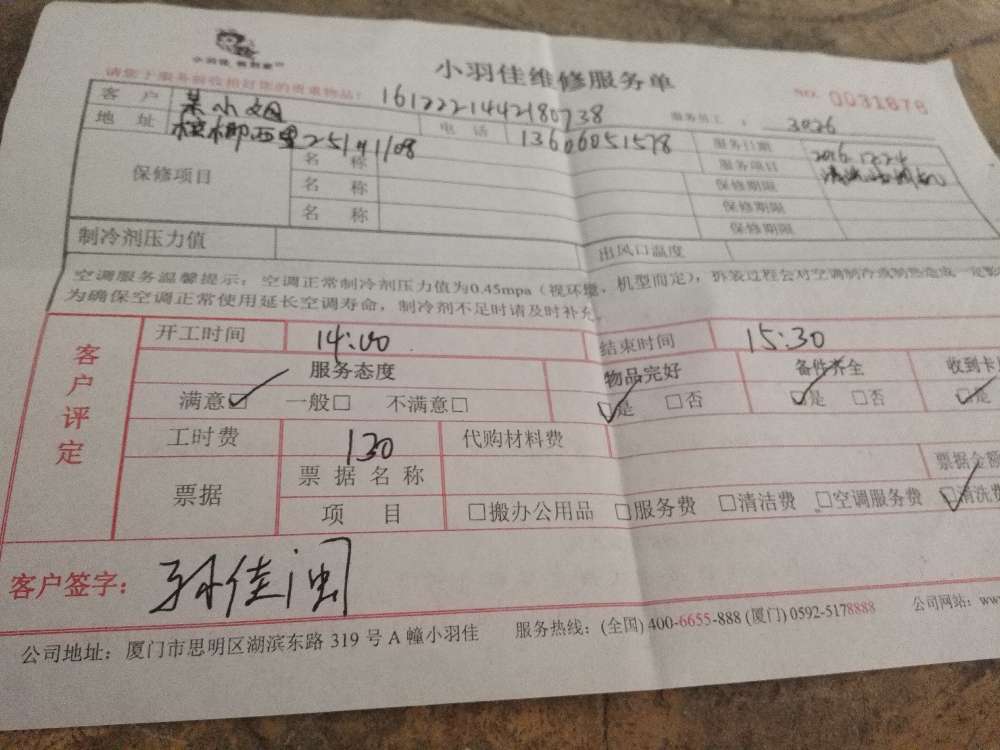 小羽佳维修服务单
请您于服务前收检好您的贵重物品！
NO. 0031878
客 户 1612221442180738 服务员工： 3026
地 址 槟榔西里251号1108 电 话 13606051578 服务日期 2016.12.24
保修项目 名 称 服务项目
名 称 保修期限
名 称 保修期限
保修期限
制冷剂压力值 出风口温度
空调服务温馨提示：空调正常制冷剂压力值为0.45mpa（视环境，机型而定），拆装过程会对空调制冷或制热造成一定影
为确保空调正常使用延长空调寿命，制冷剂不足时请及时补充。
客户评定
开工时间 14:00 结束时间 15:30
服务态度 物品完好 备件齐全 收到卡
满意☑ 一般□ 不满意□ ☑是 □否 ☑是 □否 ☑是
工时费 130 代购材料费
票据 票 据 名 称 票据金额
项 目 □搬办公用品 □服务费 □清洁费 □空调服务费 ☑清洗费
客户签字： 孙佳闽
公司地址：厦门市思明区湖滨东路 319 号 A 幢小羽佳 服务热线：(全国) 400-6655-888 (厦门) 0592-5178888 公司网站：www